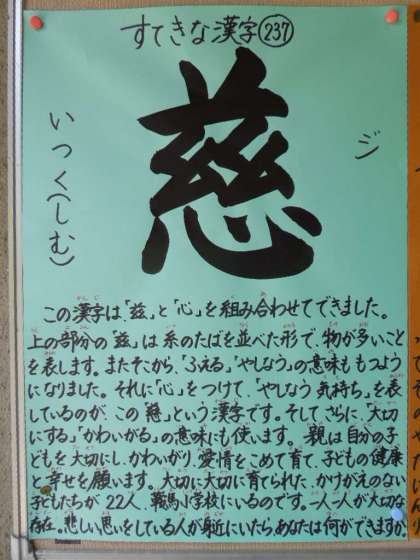 すてきな漢字237
慈
ジ
いつく(しむ)
この漢字は、「茲」と「心」を組み合わせてできました。
上の部分の「茲」は糸のたばを並べた形で、物が多いこと
を表します。またそこから、「ふえる」「やしなう」の意味ももつよう
になりました。それに「心」をつけて、「やしなう気持ち」を表
しているのが、この「慈」という漢字です。そしてさらに、「大切
にする」「かわいがる」の意味にも使います。親は自分の子
どもを大切にし、かわいがり、愛情をこめて育て、子どもの健康
と幸せを願います。大切に大切に育てられた、かけがえのない
子どもたちが22人、鞍馬小学校にいるのです。一人一人が大切な
存在。悲しい思いをしている人が身近にいたら、あなたは何ができますか。